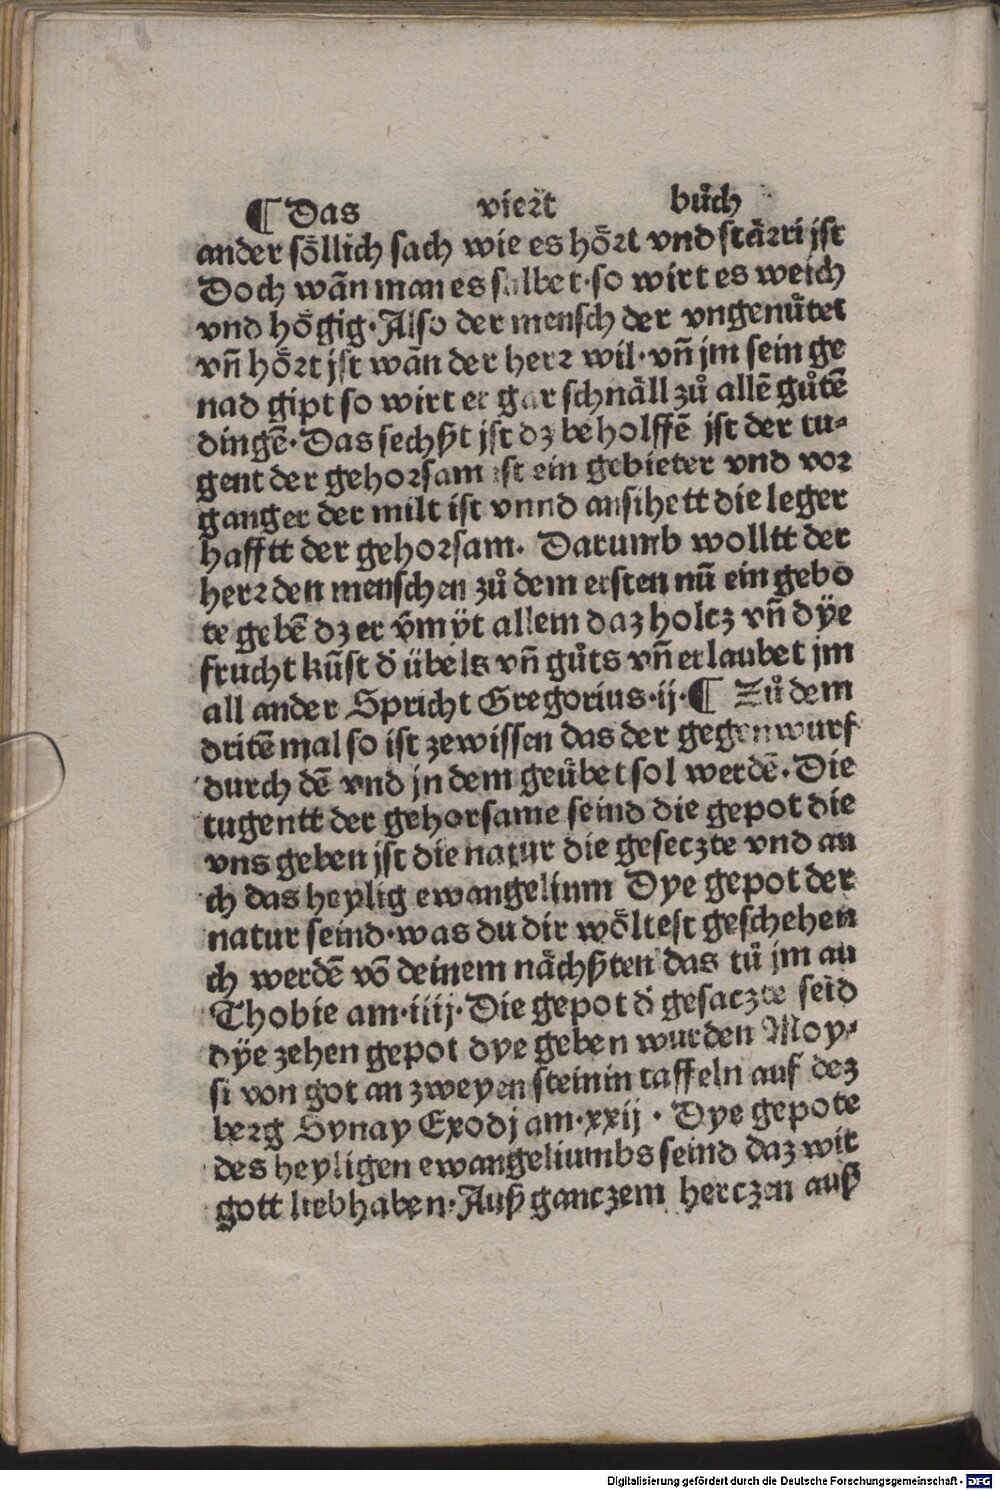 ¶ Das viert bůch
ander sőllich sach wie es hőrt vnd stärri jst
Doch wān man es salbet·so wirt es weich
vnd hőgig·Also der mensch der vngenůtet
vn̄ hőrt jst wān der herr wil·vn̄ jm sein ge
nad gipt so wirt er gar schnäll zů allē gůtē
dingē·Das sechßt jst dz beholffē jst der tu-
gent der gehorsam ist ein gebieter vnd vor
ganger der milt ist vnnd ansihett die leger
hafftt der gehorsam. Darumb wolltt der
herr den menschen zů dem ersten nū ein gebo
te gebē dz er v̄myt allem daz holcz vn̄ dÿe
frucht kūst d̄ übels vn̄ gůts vn̄ erlaubet jm
all ander Spricht Gregorius·ij·¶ Zů dem
dritē mal so ist zewissen das der gegenwurf
durch dē vnd jn dem geübet sol werdē·Die
tugentt der gehorsame seind die gepot die
vns geben jst die natur die geseczte vnd au
ch das heylig ewangelium Dye gepot der
natur seind·was du dir wőltest geschehen
ch werdē vō deinem nächßten das tů jm au
Thobie am·iiij·Die gepot d̄ gesaczte seid
dÿe zehen gepot dye geben wurden Moy-
si von got an zweyen steinin taffeln auf dez
berg Synay Exodj am·xxij· Dye gepote
des heyligen ewangeliumbs seind daz wir
gott liebhaben·Auß ganczem herczen auß
Digitalisierung gefördert durch die Deutsche Forschungsgemeinschaft - DFG